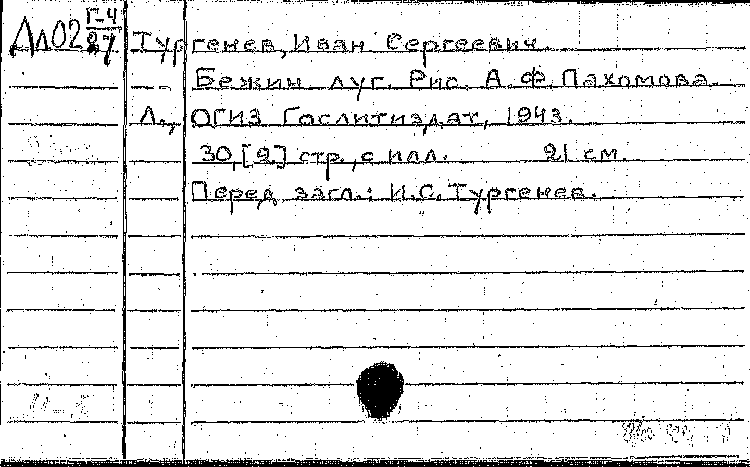 Дл02 Г-4
27
Тургенев, Иван Сергеевич.
Бежин луг. Рис. А.Ф. Пахомова.
Л., ОГИЗ Гослитиздат, 1943.
30,[2] стр., с илл. 21 см.
Перед загл.: И.С. Тургенев.